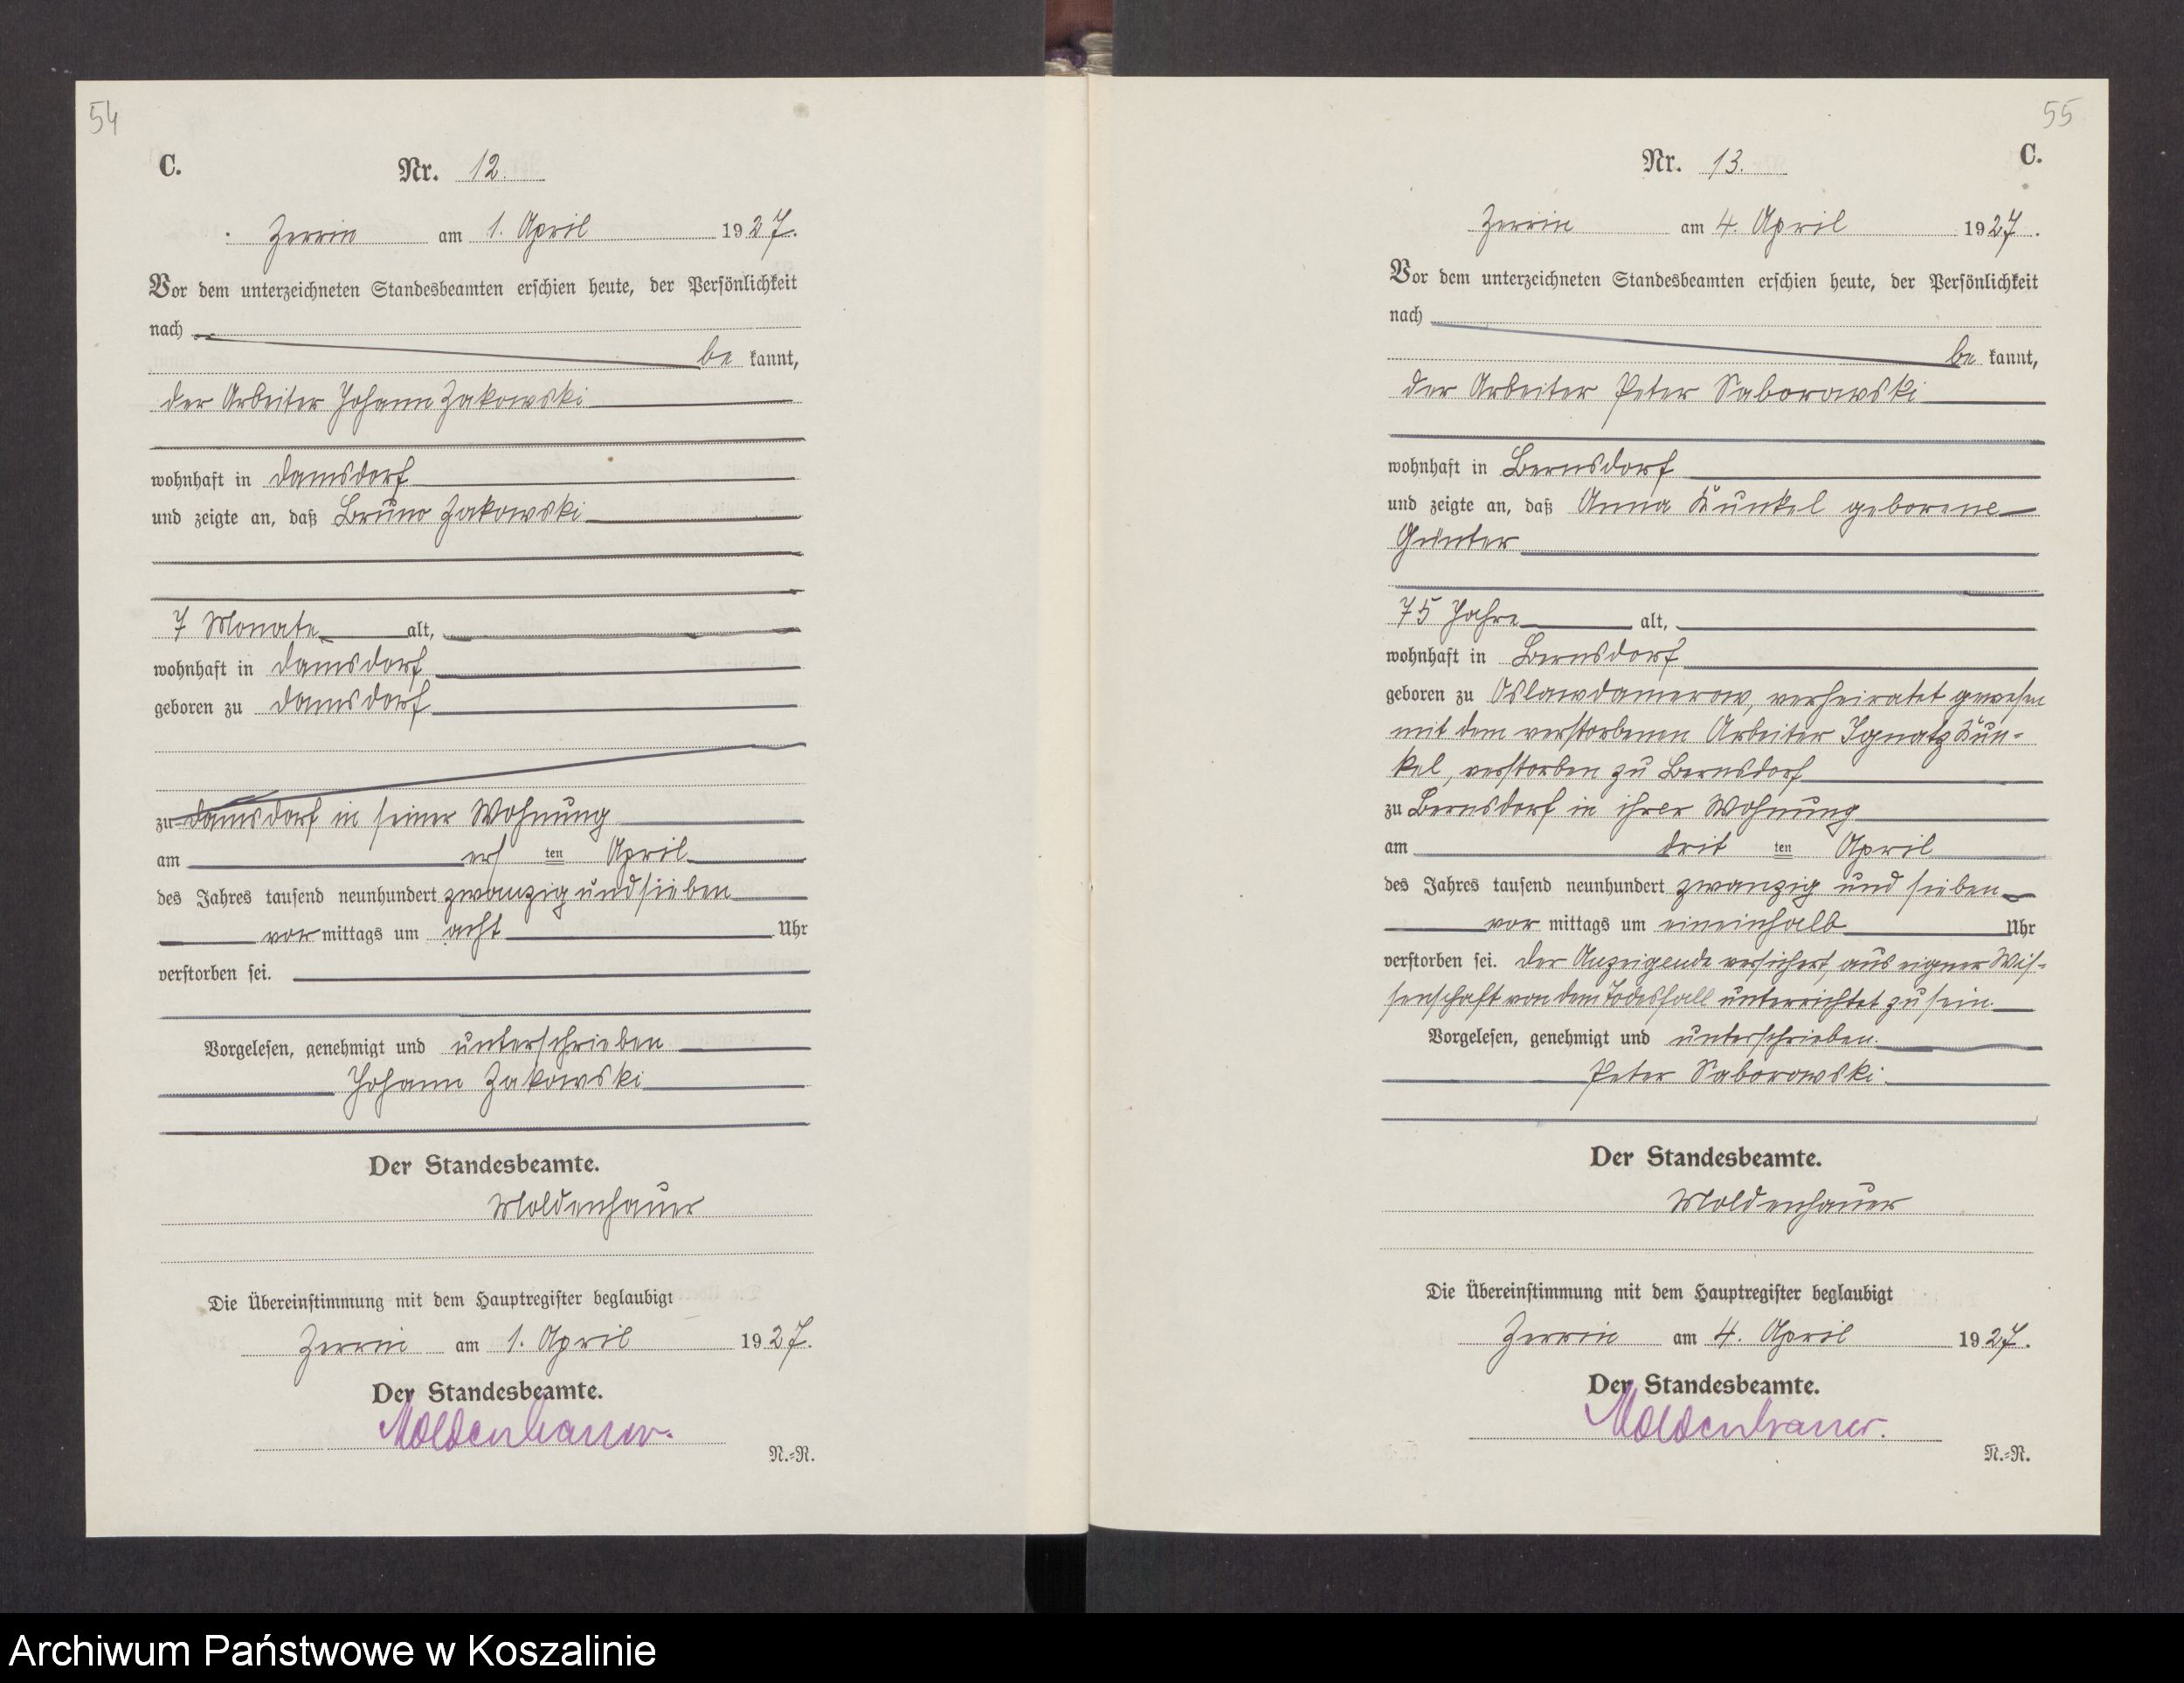 54
C.
Nr. 12.
Zerrin am 1. April 1927.
Vor dem unterzeichneten Standesbeamten erschien heute, der Persönlichkeit
nach
be kannt,
der Arbeiter Johann Zakowski
wohnhaft in Damsdorf
und zeigte an, daß Bruno Zakowski
7 Monate alt,
wohnhaft in Damsdorf
geboren zu Damsdorf
zu Damsdorf in seiner Wohnung
am ers ten April
des Jahres tausend neunhundert zwanzig und sieben
vor mittags um acht Uhr
verstorben sei.
Vorgelesen, genehmigt und unterschrieben
Johann Zakowski
Der Standesbeamte.
Moldenhauer
Die Übereinstimmung mit dem Hauptregister beglaubigt
Zerrin am 1. April 1927.
Der Standesbeamte.
Moldenhauer.
N.=R.
55
C.
Nr. 13.
Zerrin am 4. April 1927.
Vor dem unterzeichneten Standesbeamten erschien heute, der Persönlichkeit
nach
be kannt,
der Arbeiter Peter Saborowski
wohnhaft in Bernsdorf
und zeigte an, daß Anna Kunkel geborene
Günter
75 Jahre alt,
wohnhaft in Bernsdorf
geboren zu Oslawdamerow, verheiratet gewesen
mit dem verstorbenen Arbeiter Ignatz Kun-
kel, verstorben zu Bernsdorf
zu Bernsdorf in ihrer Wohnung
am drit ten April
des Jahres tausend neunhundert zwanzig und sieben
vor mittags um eineinhalb Uhr
verstorben sei. Der Anzeigende versichert, aus eigner Wis-
senschaft von dem Todesfall unterrichtet zu sein.
Vorgelesen, genehmigt und unterschrieben.
Peter Saborowski.
Der Standesbeamte.
Moldenhauer
Die Übereinstimmung mit dem Hauptregister beglaubigt
Zerrin am 4. April 1927.
Der Standesbeamte.
Moldenhauer.
N.=R.
Archiwum Państwowe w Koszalinie